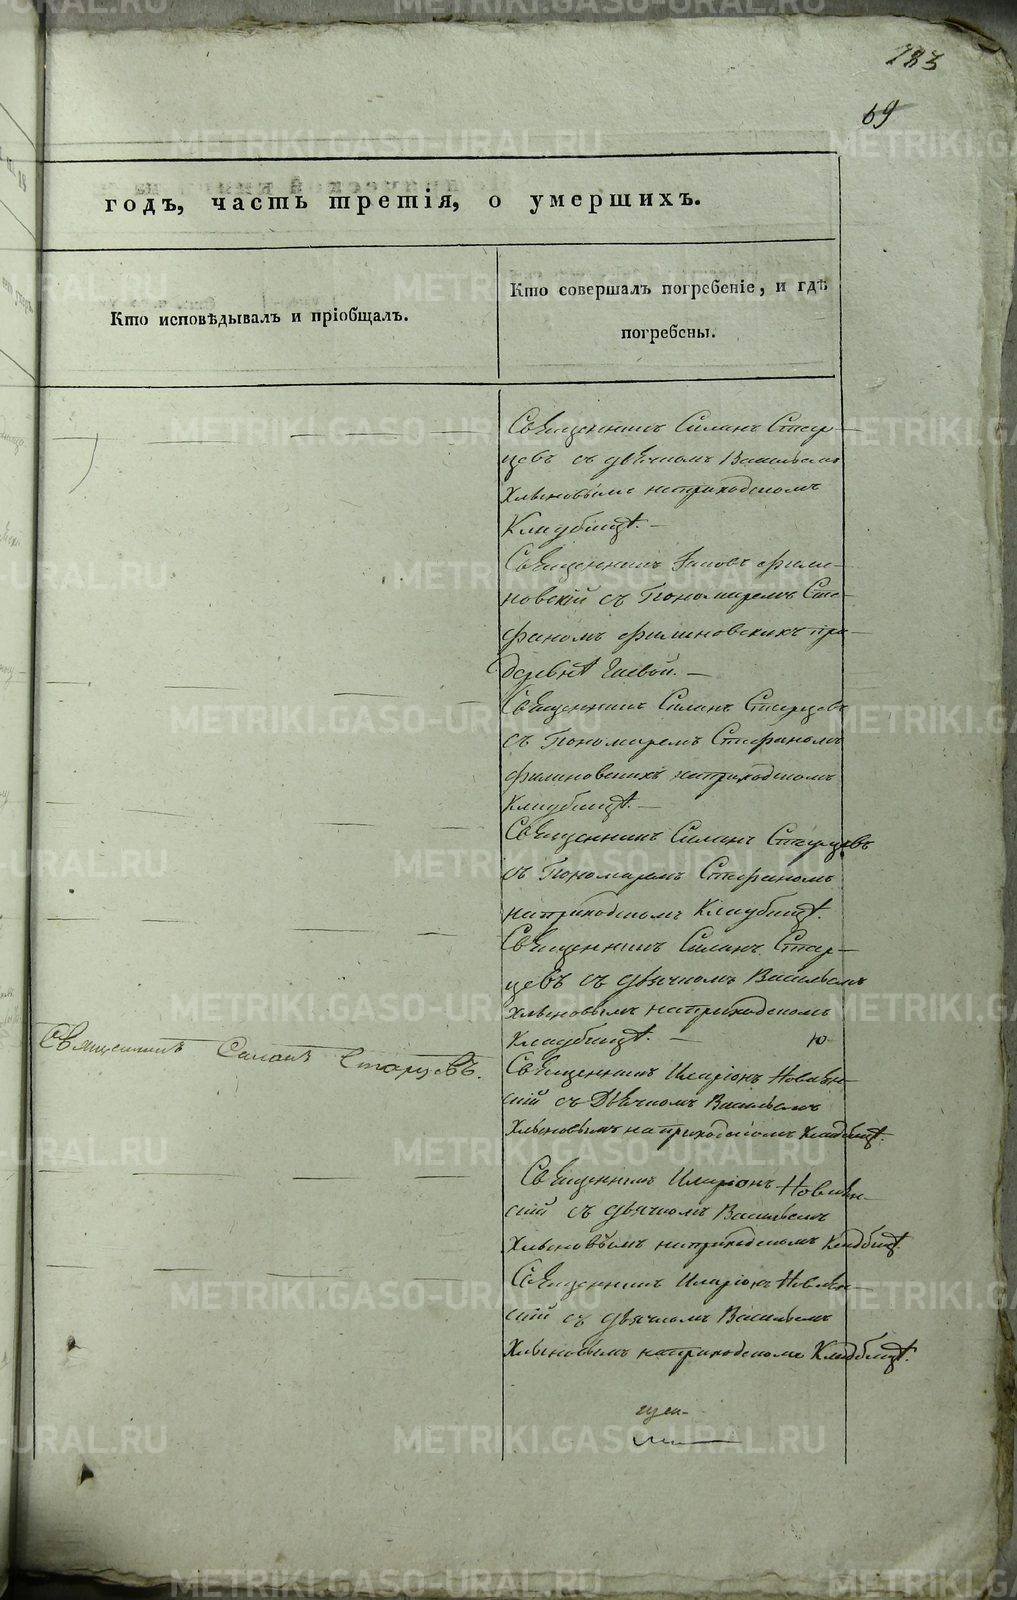 183
69
годъ, часть третія, о умершихъ.
Кто исповѣдывалъ и пріобщалъ.
Кто совершалъ погребеніе, и гдѣ
погребены.
Священникъ Силанъ Стар-
цевъ съ дьячкомъ Васильемъ
Хлыновымъ на приходскомъ
Кладбищѣ.
Священникъ Іаковъ Фили-
новскій съ Пономаремъ Сте-
фаномъ Филиновскихъ при
деревнѣ
Священникъ Силанъ Старцевъ
съ Пономаремъ Стефаномъ
Филиновскихъ на приходскомъ
Кладбищѣ.
Священникъ Силанъ Старцевъ
съ Пономаремъ Стефаномъ
на приходскомъ Кладбищѣ.
Священникъ Силанъ Стар-
цевъ съ дьячкомъ Васильемъ
Хлыновымъ на приходскомъ
Кладбищѣ.
Священникъ Силанъ Старцевъ.
Священникъ Иларіонъ
скій съ Дьячкомъ Васильемъ
Хлыновымъ на приходскомъ Кладбищѣ.
Священникъ Иларіонъ
скій съ дьячкомъ Васильемъ
Хлыновымъ на приходскомъ Кладбищѣ.
Священникъ Иларіонъ
скій съ дьячкомъ Васильемъ
Хлыновымъ на приходскомъ Кладбищѣ.
METRIKI.GASO-URAL.RU